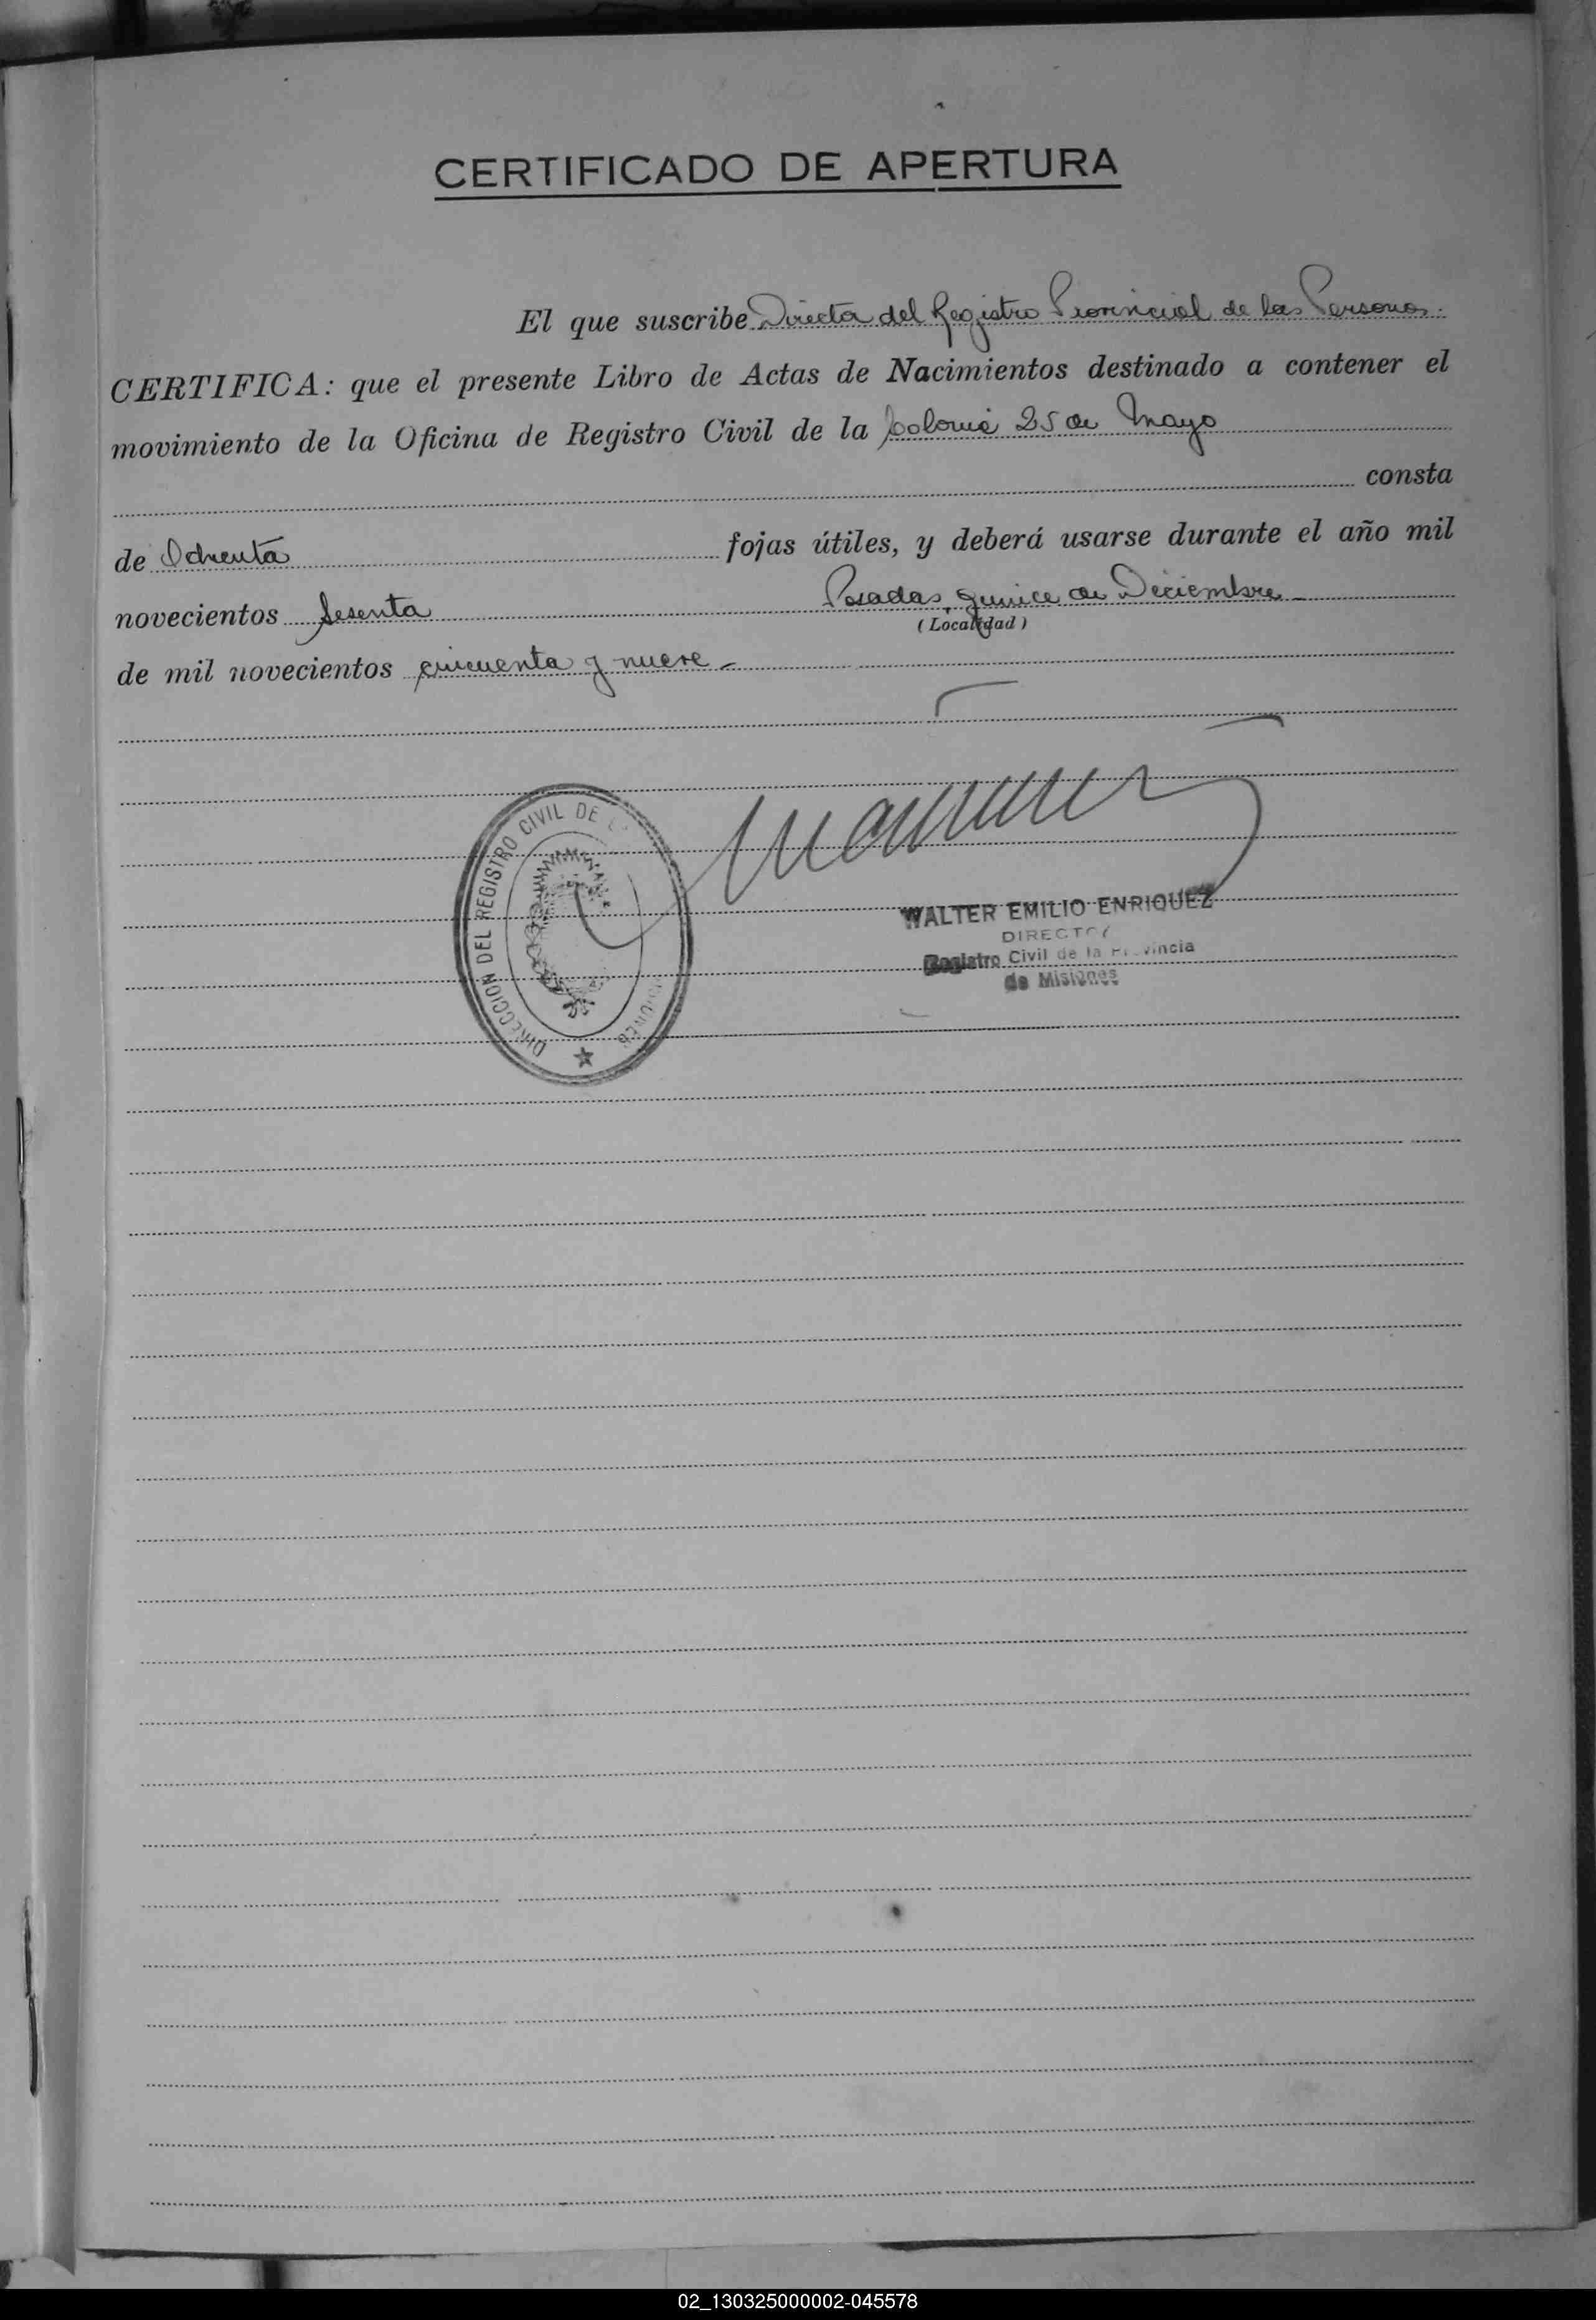 CERTIFICADO DE APERTURA
El que suscribe Director del Registro Provincial de las Personas.
CERTIFICA: que el presente Libro de Actas de Nacimientos destinado a contener el
movimiento de la Oficina de Registro Civil de la Colonia 25 de Mayo
consta
de Ochenta fojas útiles, y deberá usarse durante el año mil
novecientos Sesenta Posadas, quince de Diciembre
(Localidad)
de mil novecientos cincuenta y nueve
DIRECCION DEL REGISTRO CIVIL DE
WALTER EMILIO ENRIQUEZ
DIRECTOR
Registro Civil de la Provincia
de Misiones
02_130325000002-045578